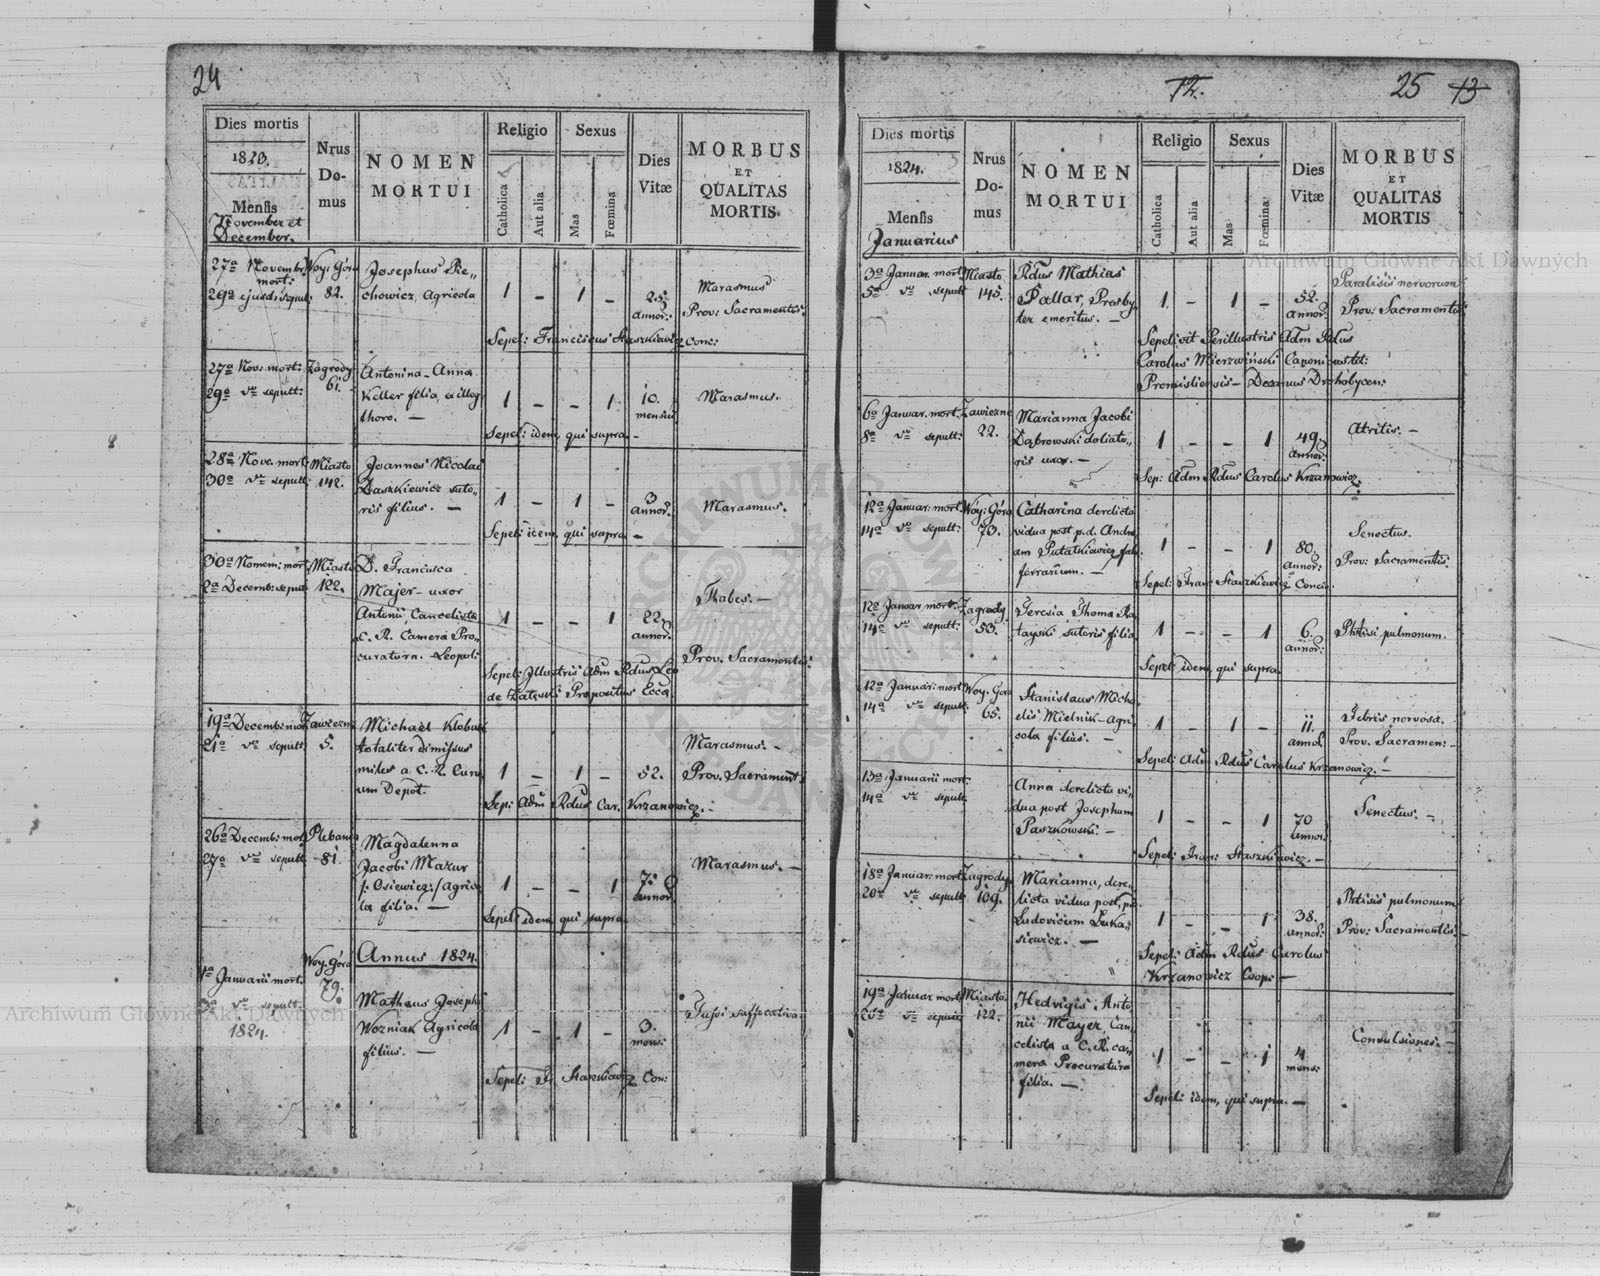 24
Dies mortis
1823.
Mensis
November et
December.
Nrus
Do-
mus
NOMEN
MORTUI
Religio
Catholica
Aut alia
Sexus
Mas
Fœmina
Dies
Vitæ
MORBUS
ET
QUALITAS
MORTIS.
27a Novembr:
mort:
29a ejusd: sepult:
Woy: Góra
82.
Josephus Pie-
chowicz, Agricola
1 - 1 -
25
annor:
Marasmus
Prov: Sacramentis.
Sepel: Franciscus Staszkiewicz Conc:
27a Nov: mort:
29a sepult:
Zagrody
61.
Antonina-Anna
Keller filia, ex illeg:
thoro. —
1 - - 1
10.
mensiu
Marasmus.
Sepel: idem, qui supra -
28a Nove. mort:
30a sepult:
Miasto
142.
Joannes Nicolai
Daszkiewicz suto-
ris filius. —
1 - 1 -
3
annor:
Marasmus.
Sepel: idem, qui supra -
30a Novem: mort:
2a Decemb: sepult:
Miasto
122.
D. Francisca
Majer - uxor
Antonii Cancelista
a C. R. Camera Pro-
curatura. Leopoli
1 - - 1
22.
annor:
Thabes. —
Prov. Sacramentis.
Sepel: Illustris Adm Rdus Leo
de Załęski Propositus Ecca.
19a Decemb: mort
21a sepult:
Zawiezna
5.
Michael Klobuk
totaliter dimissus
miles a C. R. Curu
um Depôt.
1 - 1 -
52.
Marasmus. -
Prov. Sacrament:
Sep: Adm Rdus Car. Krzanowicz.
26a Decemb: mort
27a sepult
Plebania
81.
Magdalenna
Jacobi Mazur
/: Osiewicz :/ Agrico
la filia. —
1 - - 1
7.
annor.
Marasmus. —
Sepel: idem, qui supra.
Annus 1824.
1a Januarii mort.
sepult:
1824.
Woy. Góra
79.
Matheus Josephi
Wozniak Agricola
filius. —
1 - 1 -
3.
mens:
Tussi suffocativa.
Sepel: Fr Staszkiewicz Con:
12.
25
13
Dies mortis
1824.
Mensis
Januarius
Nrus
Do-
mus
NOMEN
MORTUI
Religio
Catholica
Aut alia
Sexus
Mas
Fœmina
Dies
Vitæ
MORBUS
ET
QUALITAS
MORTIS
3a Januar. mort
5a sepult
Miasto
145.
Rdus Mathias
Pallar, Presby-
ter emeritus. —
1 - 1 -
52.
annor:
Paralisis nervorum
Prov: Sacramentis
Sepelivit Perillustris Adm Rdus
Carolus Mierzwiński Canonicus tit:
Premisliensis - Decanus Drohobycen:
6a Januar. mort.
8a sepult:
Zawiezne
22.
Marianna Jacobi
Dąbrowski doliato-
ris uxor. —
1 - - 1
49
annor:
Atritis. —
Sep: Adm Rdus Carolus Krzanowicz
12a Januar: mort.
14a sepult:
Woy: Góra
73.
Catharina derelicta
vidua post p.d. Andre
am Putatkiewicz fab:
ferrarium. —
1 - - 1
80.
annor:
Senectus.
Prov: Sacramentis
Sepel: Fran: Staszkiewicz Conci.
12a Januar mort.
14a sepult:
Zagrody
53.
Teresia Thoma Ra
tayski sutoris filia
1 - - 1
6.
annor:
Phtisi pulmonum.
Sepel: idem, qui supra.
12a Januar: mort
14a sepult:
Woy. Góra
65.
Stanislaus Micha
elis Mielnik - agri
cola filius. —
1 - 1 -
11.
annor.
Febris nervosa.
Prov. Sacramen: -
Sepel: Adm Rdus Carolus Krzanowicz. -
13a Januarii mort:
14a sepult.
Anna derelicta vi-
dua post Josephum
Paszkowski. —
1 - - 1
70
annor.
Senectus. -
Sepel: Fran: Staszkiewicz. -
18a Januar: mort
20a sepult
Zagrody
109.
Marianna, dere-
licta vidua post, p.d.
Ludovicum Łuka-
siewicz. —
1 - - 1
38.
annor:
Phtisis pulmonum
Prov: Sacramentis. -
Sepel: Adm Rdus Carolus
Krzanowicz Coop: —
19a Januar mort
sepult
Miasto
122.
Hedvigis Anto
nii Mayer, Can-
celista a C. R. ca-
mera Procuratura
filia. —
1 - - 1
4
mens:
Convulsiones. -
Sepel: idem, qui supra. —
Archiwum Główne Akt Dawnych
Archiwum Główne Akt Dawnych
ARCHIWUM GŁÓWNE AKT DAWNYCH